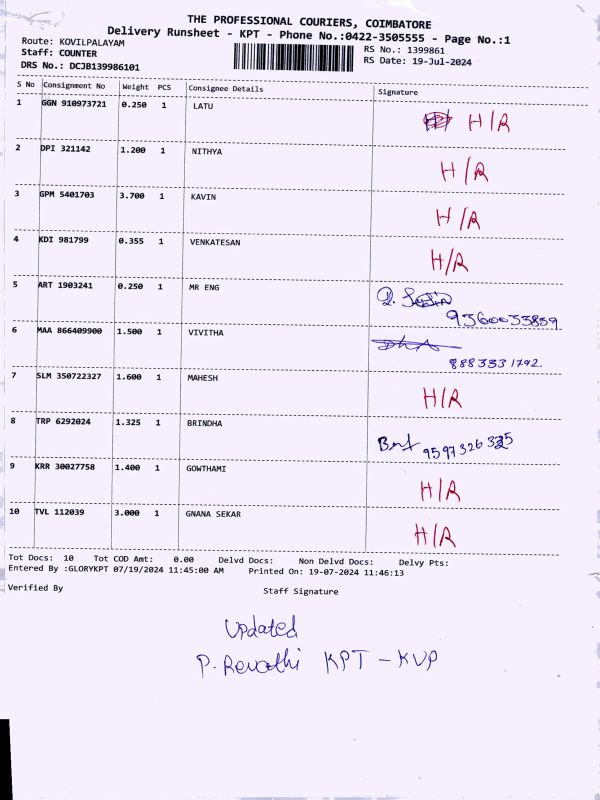 THE PROFESSIONAL COURIERS, COIMBATORE
Delivery Runsheet - KPT - Phone No.:0422-3505555 - Page No.:1
Route: KOVILPALAYAM RS No.: 1399861
Staff: COUNTER RS Date: 19-Jul-2024
DRS No.: DCJB139986101
S No Consignment No Weight PCS Consignee Details Signature
1 GGN 910973721 0.250 1 LATU H/R
2 DPI 321142 1.200 1 NITHYA H/R
3 GPM 5401703 3.700 1 KAVIN H/R
4 KDI 981799 0.355 1 VENKATESAN H/R
5 ART 1903241 0.250 1 MR ENG
9360033859
6 MAA 866409900 1.500 1 VIVITHA
8883331792
7 SLM 350722327 1.600 1 MAHESH H/R
8 TRP 6292024 1.325 1 BRINDHA 9597326325
9 KRR 30027758 1.400 1 GOWTHAMI H/R
10 TVL 112039 3.000 1 GNANA SEKAR H/R
Tot Docs: 10 Tot COD Amt: 0.00 Delvd Docs: Non Delvd Docs: Delvy Pts:
Entered By :GLORYKPT 07/19/2024 11:45:00 AM Printed On: 19-07-2024 11:46:13
Verified By Staff Signature
Updated
P. Revathi KPT - KVP